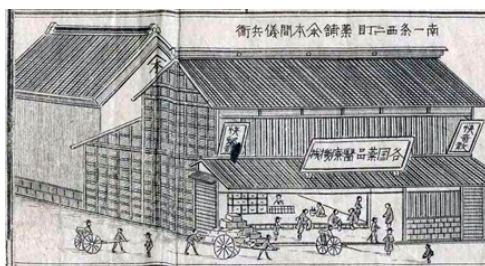 南一条西二丁目 薬舗 本間儀兵衛
各国薬品醫療器械